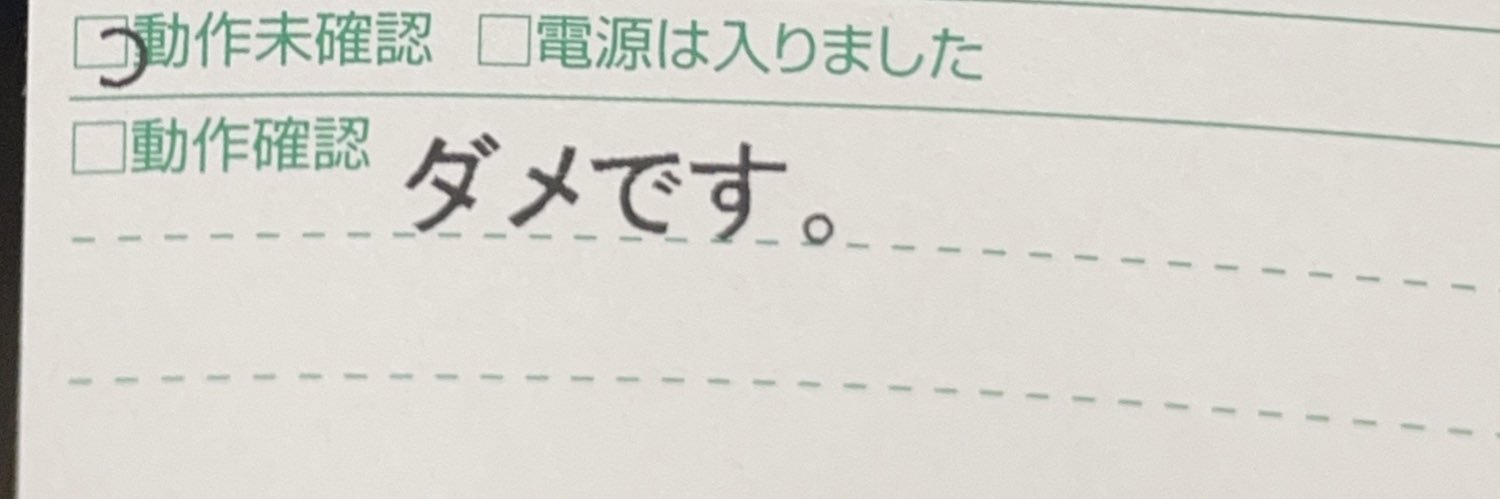 □動作未確認 □電源は入りました
□動作確認 ダメです。